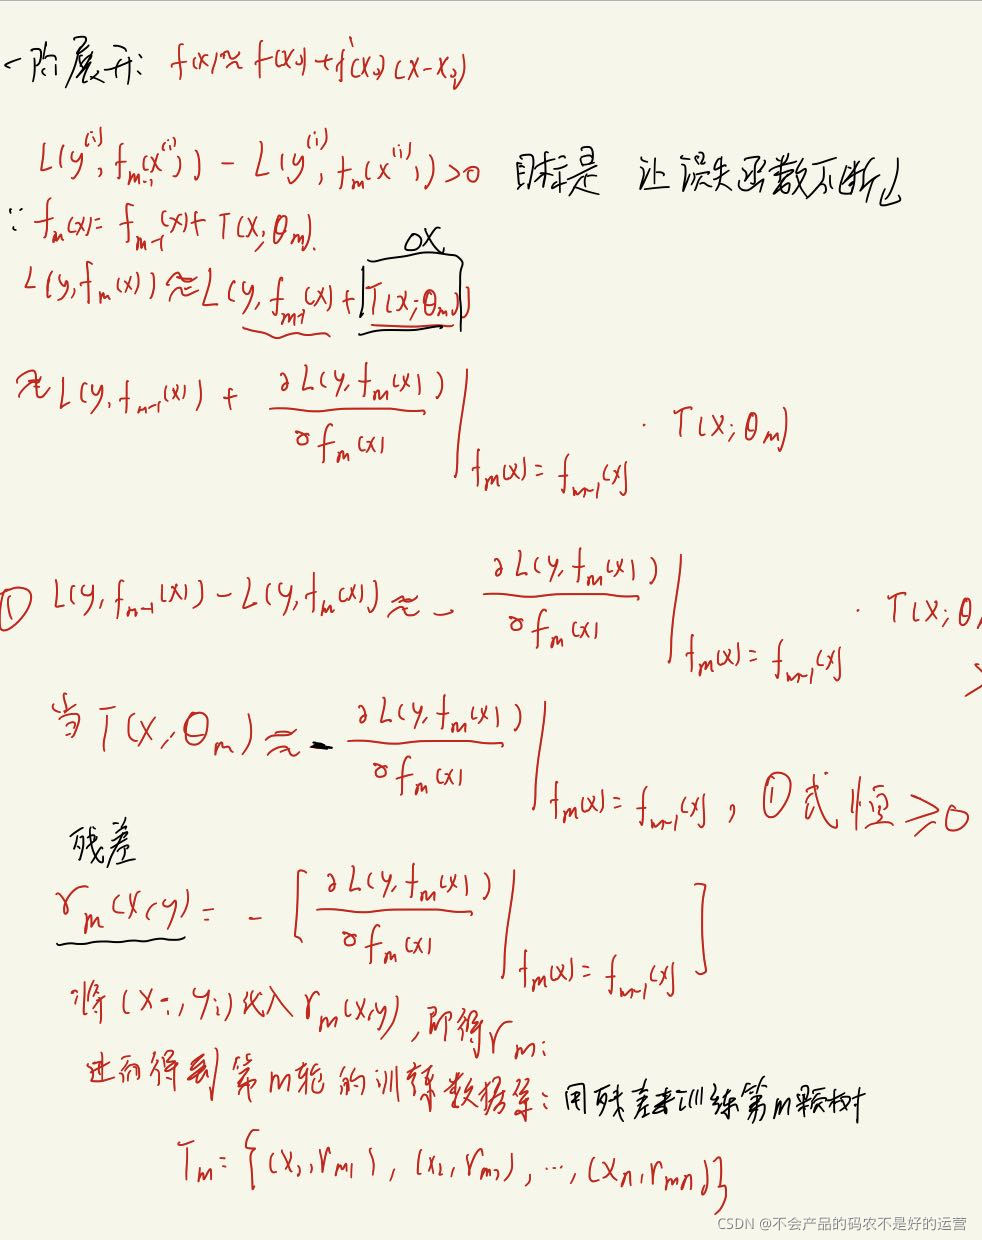 一阶展开: f(x) ≈ f(x₀) + f'(x₀)(x-x₀)
L(y⁽ⁱ⁾, fₘ₋₁(x⁽ⁱ⁾)) - L(y⁽ⁱ⁾, fₘ(x⁽ⁱ⁾)) > 0 目标是 让损失函数不断↓
∵ fₘ(x) = fₘ₋₁(x) + T(x;θₘ).
ΔX
L(y, fₘ(x)) ≈ L(y, fₘ₋₁(x) + T(x;θₘ))
≈ L(y, fₘ₋₁(x)) + ∂L(y, fₘ(x)) / ∂fₘ(x) | fₘ(x) = fₘ₋₁(x) · T(x;θₘ)
① L(y, fₘ₋₁(x)) - L(y, fₘ(x)) ≈ - ∂L(y, fₘ(x)) / ∂fₘ(x) | fₘ(x) = fₘ₋₁(x) · T(x;θ
当 T(x;θₘ) ≈ - ∂L(y, fₘ(x)) / ∂fₘ(x) | fₘ(x) = fₘ₋₁(x), ①式恒≥0
残差
rₘ(x,y) = - [ ∂L(y, fₘ(x)) / ∂fₘ(x) | fₘ(x) = fₘ₋₁(x) ]
将(xᵢ, yᵢ)代入rₘ(x,y), 即得rₘᵢ
进而得到第m轮的训练数据集: 用残差来训练第m颗树
Tₘ = {(x₁, rₘ₁), (x₂, rₘ₂), ..., (xₙ, rₘₙ)}
CSDN @不会产品的码农不是好的运营